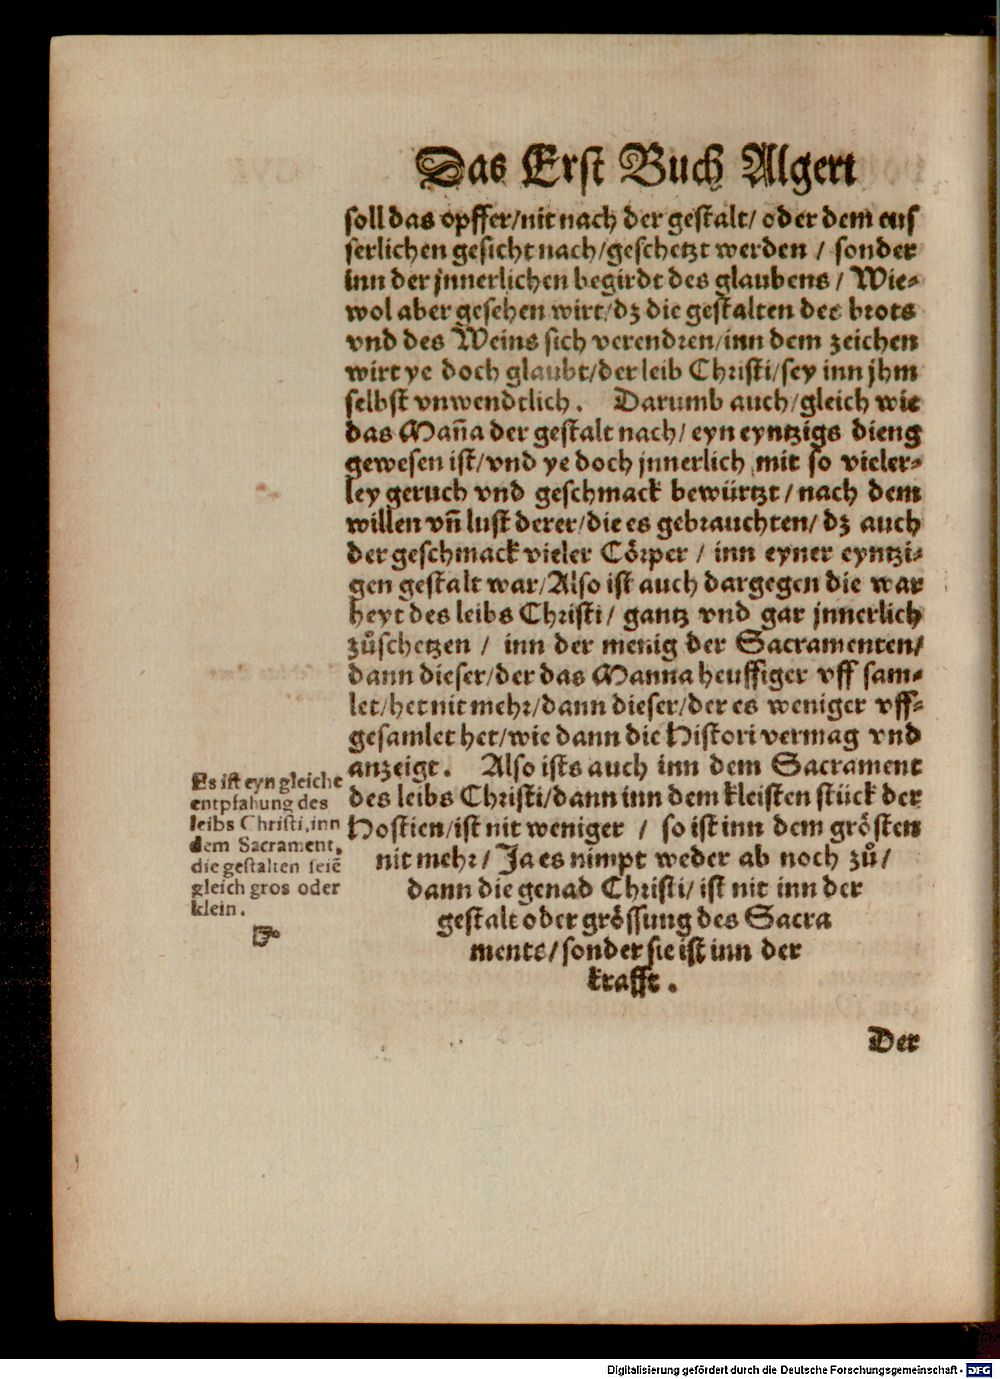 Das Erst Buch Algeri
soll das opffer/nit nach der gestalt/ oder dem eus
serlichen gesicht nach/geschetzt werden / sonder
inn der jnnerlichen begirdt des glaubens / Wie-
wol aber gesehen wirt/dz die gestalten des brots
vnd des Weins sich verendren/inn dem zeichen
wirt ye doch glaubt/der leib Christi/sey inn jhm
selbst vnwendtlich. Darumb auch/gleich wie
das Maña der gestalt nach/ eyn eyntzigs dieng
gewesen ist/vnd ye doch jnnerlich mit so vieler-
ley geruch vnd geschmack bewürtzt / nach dem
willen vñ lust derer/die es gebrauchten/ dz auch
der geschmack vieler Cörper / inn eyner eyntzi-
gen gestalt war/Also ist auch dargegen die war
heyt des leibs Christi/ gantz vnd gar jnnerlich
zůschetzen / inn der menig der Sacramenten/
dann dieser/der das Manna heuffiger vff sam-
let/het nit mehr/dann dieser/der es weniger vff-
gesamlet het/wie dann die Histori vermag vnd
anzeigt. Also ists auch inn dem Sacrament
des leibs Christi/dann inn dem kleisten stück der
Hostien/ist nit weniger / so ist inn dem grösten
nit mehr/ Ja es nimpt weder ab noch zů/
dann die genad Christi/ ist nit inn der
gestalt oder grössung des Sacra
ments/sonder sie ist inn der
krafft.
Es ist eyn gleiche
entpfahung des
leibs Christi,inn
dem Sacrament,
die gestalten seiē
gleich gros oder
klein.
☞
Der
Digitalisierung gefördert durch die Deutsche Forschungsgemeinschaft - DFG